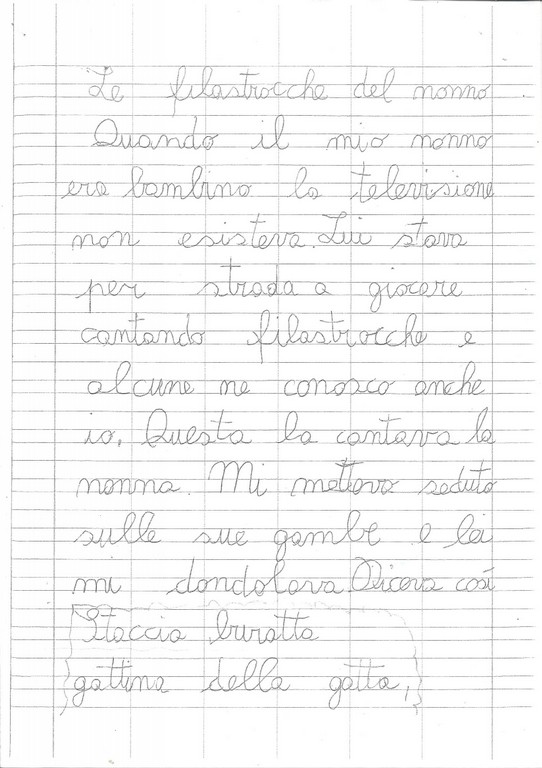 Le filastrocche del nonno
Quando il mio nonno
era bambino la televisione
non esisteva. Lui stava
per strada a giocare
cantando filastrocche e
alcune ne conosco anche
io. Questa la cantava la
nonna. Mi mettevo seduto
sulle sue gambe e lei
mi dondolava. Diceva così
Staccia buratta
gattina della gatta,